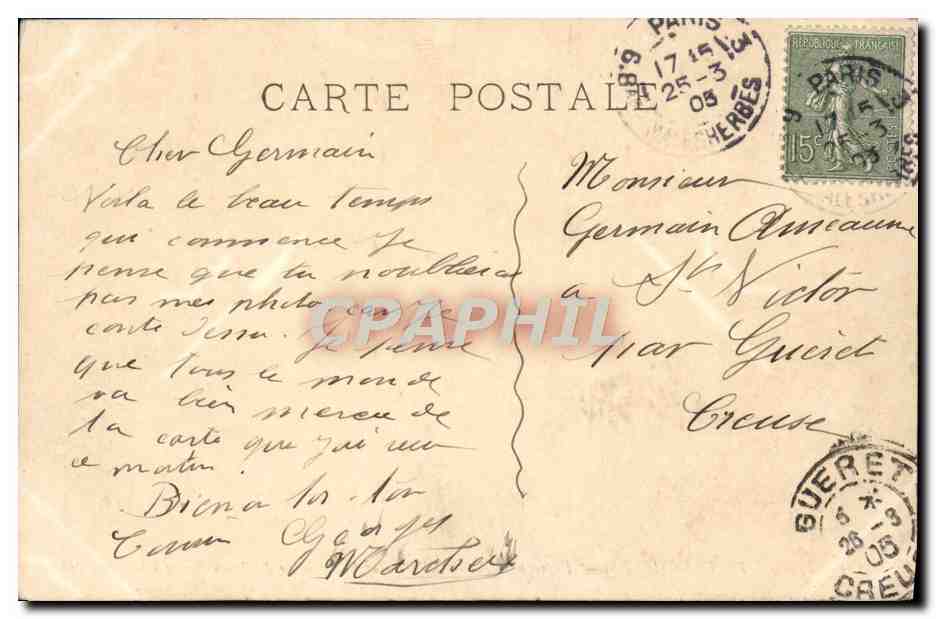 CARTE POSTALE
Cher Germain
Voila le beau temps
qui commence Je
pense que tu noublieras
pas mes photo car je
conte dessu. Je pense
que tous le monde
va bien merci de
ta carte que j'ai reçu
ce matin
Bien a toi ton
Cousin Georges
Monsieur
Germain
a St Victor
par Guéret
Creuse
REPUBLIQUE FRANÇAISE
15c
PARIS
17 15
25-3
05
PARIS
25-3
05
GUERET
26 -3
05
CREUSE
CPAPHIL